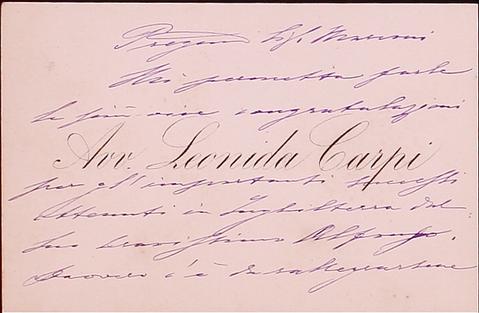 Pregmo Sig. Marconi
Mi permetta farle
le più vive congratulazioni
Avv. Leonida Carpi
per gl'importanti successi
ottenuti in Inghilterra dal
suo bravissimo
Davvero c'è da rallegrarsene